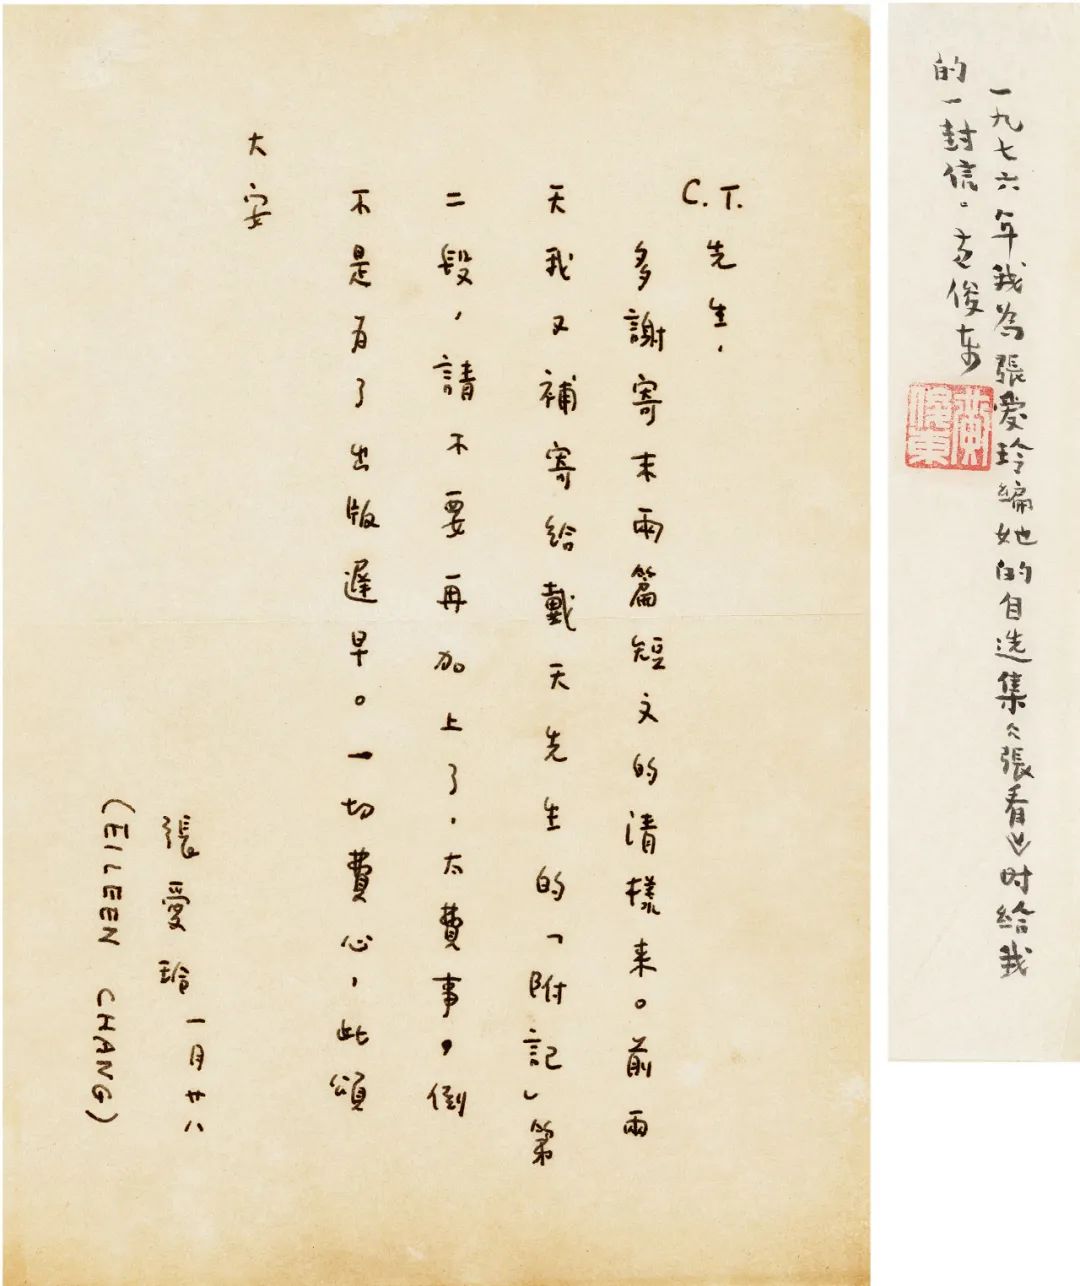 C.T.先生，
多謝寄末兩篇短文的清樣来。前兩
天我又補寄給戴天先生的「附記」第
二段，請不要再加上了，太費事。倒
不是为了出版遲早。一切費心，此頌
大安
張愛玲
一月廿八
(EILEEN CHANG)
一九七六年我為張愛玲編她的自选集《張看》时給我
的一封信。黄俊东
黄俊東